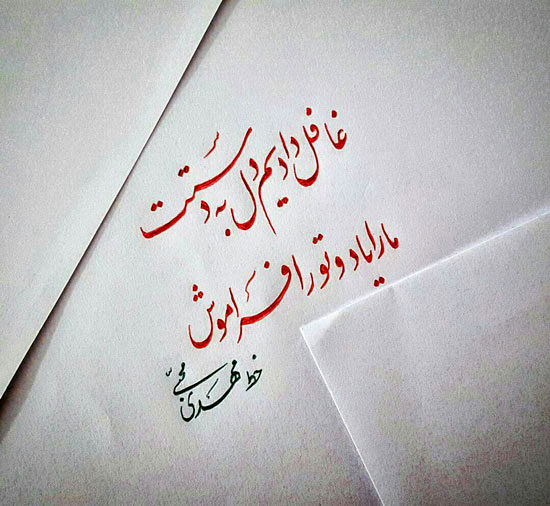 غافل دادیم دل به دستت
ما را یاد و تو را فراموش
خط مهدی محبی